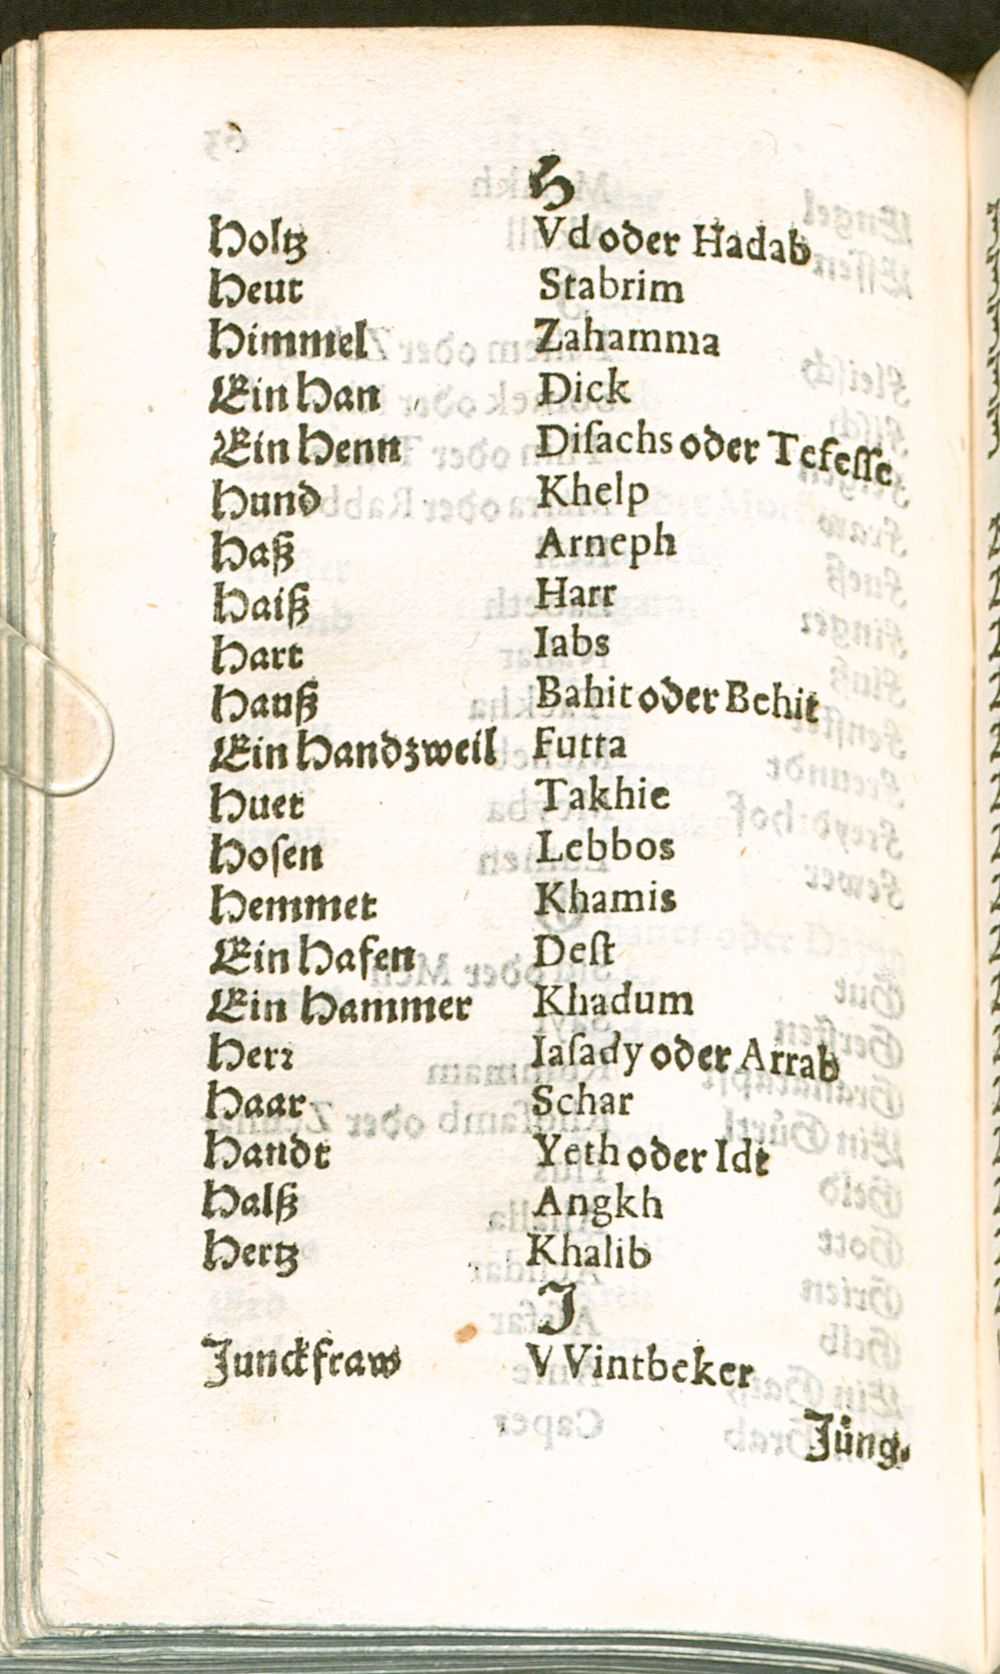 H
Holtz Vd oder Hadab
Heut Stabrim
Himmel Zahamma
Ein Han Dick
Ein Henn Diſachs oder Tefeſſe
Hund Khelp
Haß Arneph
Haiß Harr
Hart Iabs
Hauß Bahit oder Behit
Ein Handzweil Futta
Huet Takhie
Hoſen Lebbos
Hemmet Khamis
Ein Hafen Deſt
Ein Hammer Khadum
Herꝛ Iaſady oder Arrab
Haar Schar
Handt Yeth oder Idt
Halß Angkh
Hertz Khalib
J
Junckfraw VVintbeker
Jüng-